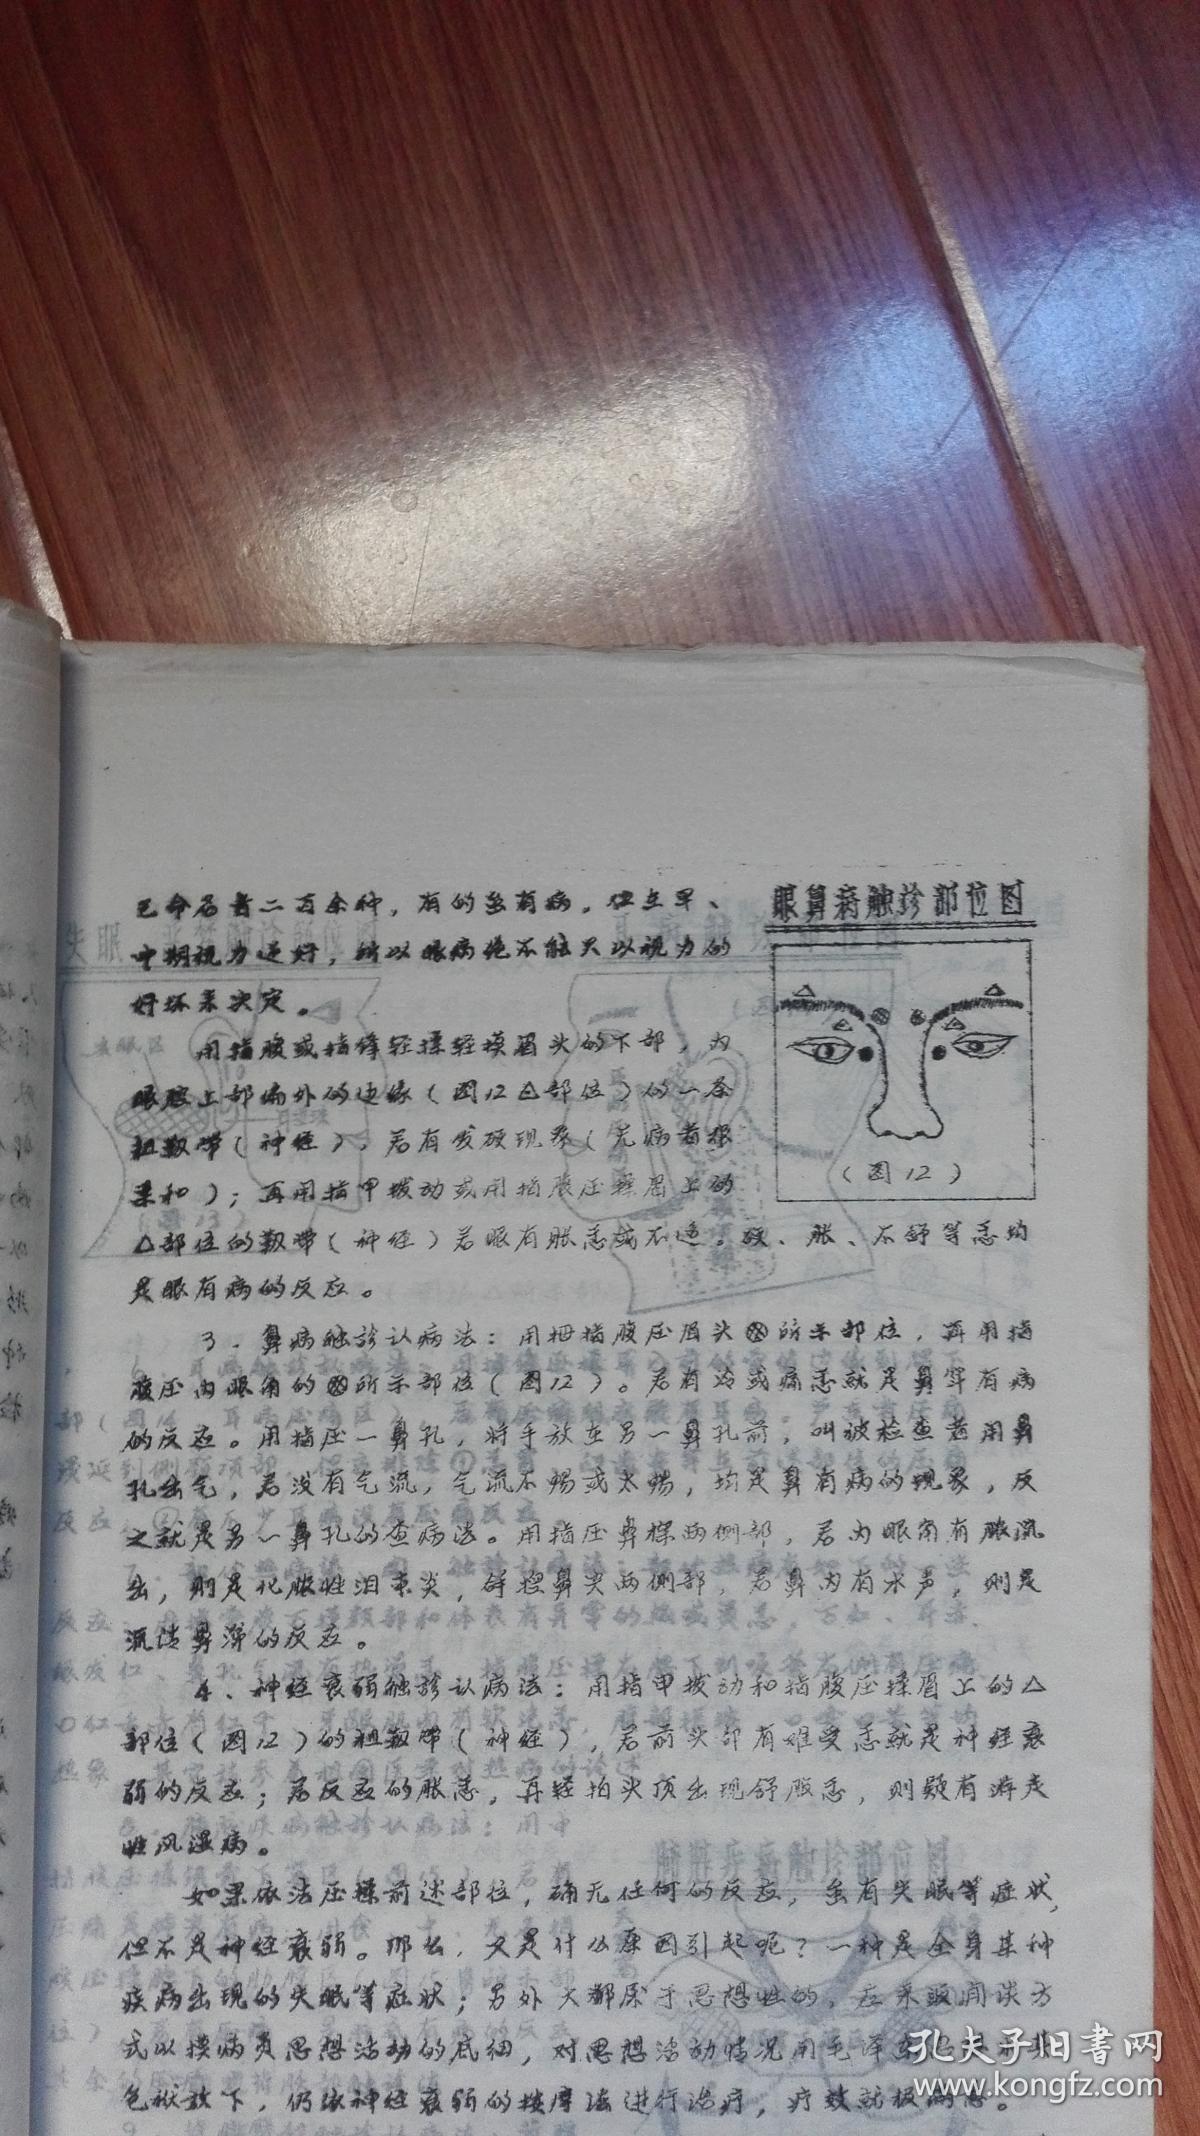 已命名者二百余种，有的虽有病，但在早、
中期视力还好，所以眼病绝不能只以视力的
好坏来决定。
眼鼻病触诊部位图
（图12）
用指腹或指锋轻揉轻摸眉头的下部，内
眼腔上部偏外的边缘（图12△部位）的一条
粗韧带（神经），若有发硬现象（无病者很
柔和）；再用指甲拨动或用指腹压揉眉上的
△部位的韧带（神经）若眼有胀感或不适。硬、胀、不舒等感均
是眼有病的反应。
3．鼻病触诊认病法：用拇指腹压眉头⊗所示部位，再用指
腹压内眼角的⊗所示部位（图12）。若有冷或痛感就是鼻窂有病
的反应。用指压一鼻孔，将手放在另一鼻孔前，叫被检查者用鼻
孔出气，若没有气流，气流不畅或太畅，均是鼻有病的现象，反
之就是另一鼻孔的查病法。用指压鼻樑两侧部，若内眼角有脓流
出，则是化脓性泪束炎，鼻尖两侧部，若鼻内有水声，则是
流涕鼻的反应。
4、神经衰弱触诊认病法：用指甲拨动和指腹压揉眉上的△
部位（图12）的粗韧带（神经），若前头部有难受感就是神经衰
弱的反应；若反应的胀感，再轻拍头顶出现舒服感，则疑有游走
性风湿病。
如果依法压揉前述部位，确无任何的反应，虽有失眠等症状，
但不是神经衰弱。那么，又是什么原因引起呢？一种是全身某种
疾病出现的失眠等症状；另外大都属于思想性的，应采取闲谈方
式以摸病员思想活动的底细，对思想活动情况用毛泽东思想
包袱放下，仍依神经衰弱的按摩法进行治疗，疗效就极满意。
孔夫子旧书网
www.kongfz.com